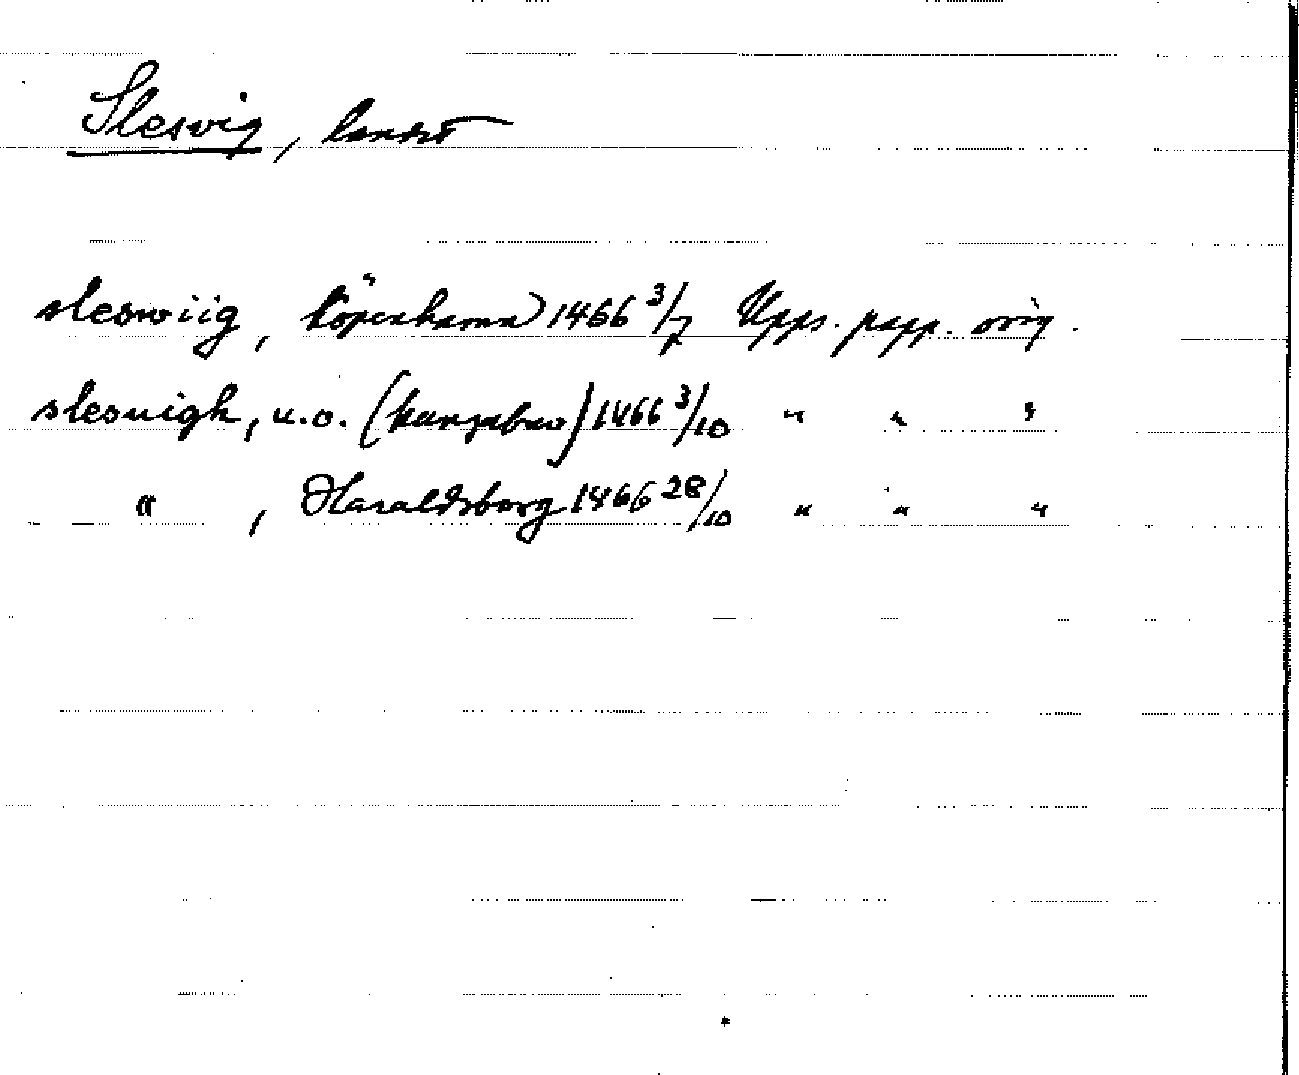 Slesvig, landet
sleswiig, köpenhamn 1466 3/7 Upps. papp. orig.
slesuigh, u.o. (kungabrev) 1466 3/10 " " "
" , Haraldsborg 1466 28/10 " " "